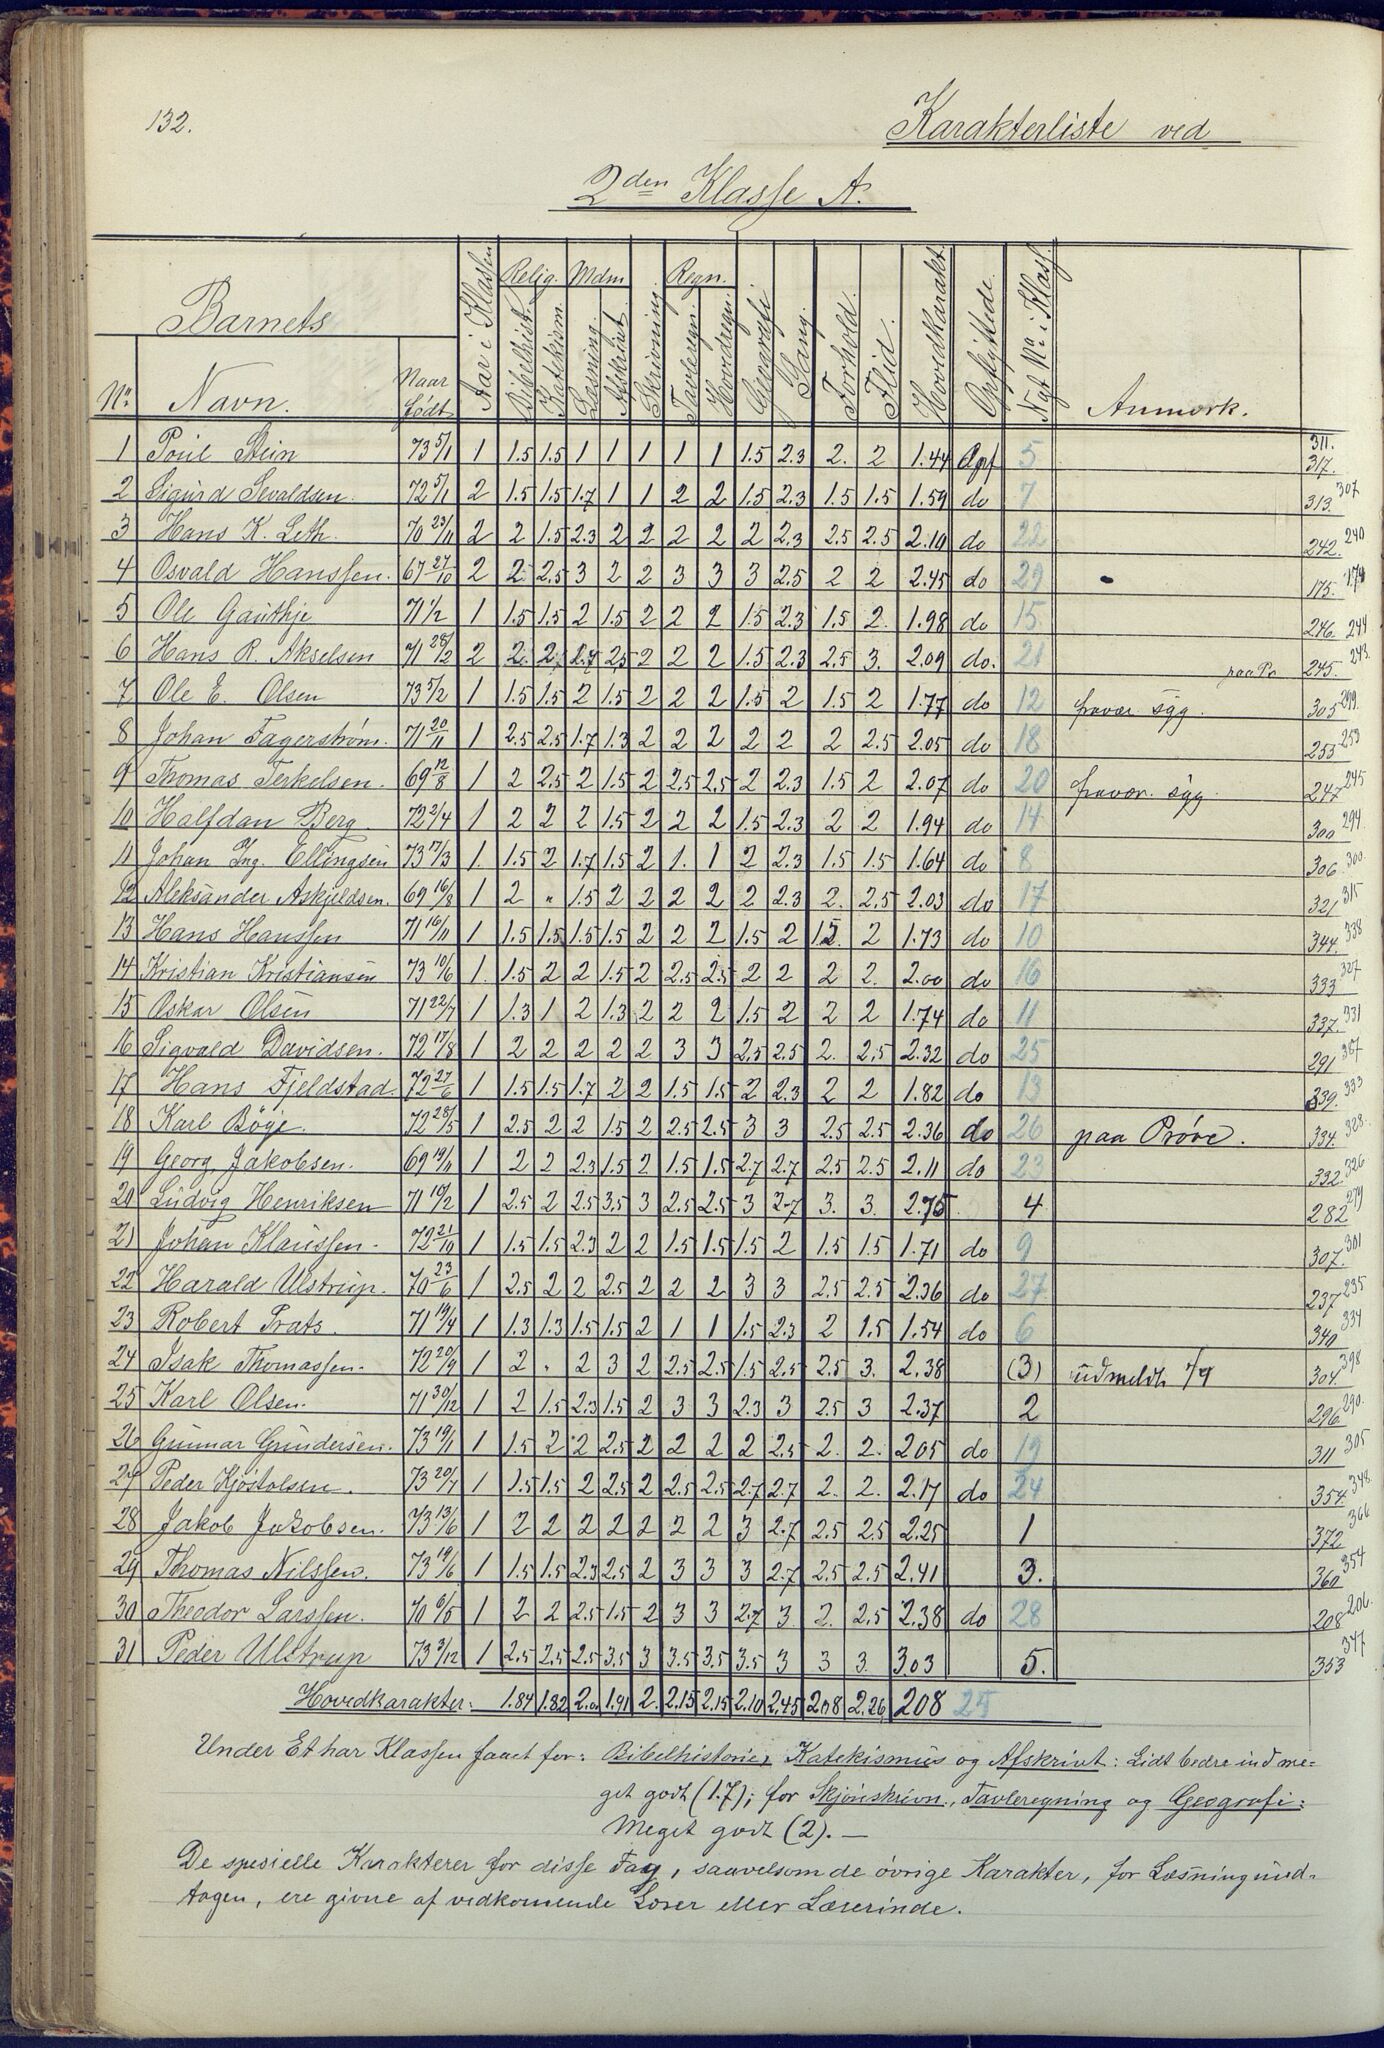 132.
Karakterliste ved
2den Klasse A.
Barnets
No Navn. Naar født Aar i Klassen Relig. Bibelhist. Katekism. Mdm Læsning. Afskrivt. Skrivning. Regn. Tavleregn. Hovedregn. Geografi Sang. Forhold. Flid. Hovedkarakt. Opflyttede. Nyt No i Klas. Anmærk.
1 Poul Stein 73 5/1 1 1.5 1.5 1 1 1 1 1 1.5 2.3 2. 2 1.44 Opf 5 311. 317.
2 Sigurd Sevaldsen. 72 5/1 2 1.5 1.5 1.7 1 1 2 2 1.5 2.3 1.5 1.5 1.59 do 7 313. 307
3 Hans K. Leth. 70 23/11 2 2 1.5 2.3 2 2 2 2 2 2.3 2.5 2.5 2.10 do 22 242. 240
4 Osvald Hanssen. 67 27/10 2 2 2.5 3 2 2 3 3 3 2.5 2 2 2.45 do 29 175. 174
5 Ole Gauthje 71 1/2 1 1.5 1.5 2 1.5 2 2 2 1.5 2.3 1.5 2. 1.98 do 15 246. 244
6 Hans R. Akselsen 71 28/12 2 2. 2. 1.7 2.5 2 2 2 1.5 2.3 2.5 3. 2.09 do. 21 paa Pr 245. 243.
7 Ole E. Olsen 73 5/2 1 1.5 1.5 2 1.5 2 2 2 1.5 2 1.5 2 1.77 do 12 fravær. syg. 305 299.
8 Johan Fagerstrøm. 71 20/11 1 2.5 2.5 1.7 1.3 2 2 2 2 2 2 2.5 2.05 do 18 255 253
9 Thomas Terkelsen. 69 12/8 1 2 2.5 2 1.5 2 2.5 2.5 2 2.3 1.5 2 2.07 do 20 fravær. syg 247 245
10 Halfdan Berg 72 2/4 1 2 2 2 1.5 2 2 2 1.5 2.3 2 2 1.94 do 14 300 294
11 Johan Ing. Ellingsen 73 17/3 1. 1.5 2 1.7 1.5 2 1. 1 2 2.3 1.5 1.5 1.64 do 8 306. 300.
12 Aleksander Askjeldsen. 69 16/3 1 2 " 1.5 2 2 2 2 2 2.3 2. 2.5 2.03 do 17 321 315
13 Hans Hanssen 71 16/11 1 1.5 1.5 1.5 1.5 2 2 2 1.5 2 1.5 2 1.73 do 10 344. 338
14 Kristian Kristiansen 73 10/6 1. 1.5 2 2 1.5 2 2.5 2.5 2 2 2 2. 2.00 do 16 333 327
15 Oskar Olsen 71 22/7 1 1.3 1 2 1.3 2 2 2 1.5 2 2 2 1.74 do 11 337. 331
16 Sigvald Davidsen. 72 17/8 1 2 2 2 2 2 3 3 2.5 2.5 2. 2.5 2.32 do 25 291
17 Hans Fjeldstad 72 27/6 1 1.5 1.5 1.7 2 2 1.5 1.5 2 2.3 2 2 1.82 do 13 339. 333
18 Karl Bøge. 72 28/5 1 2.5 2 2 1.5 2 2.5 2.5 3 3 2.5 2.5 2.36 do 26 paa Prøve. 334. 328.
19 Georg Jakobsen. 69 19/11 1 2 2 2.3 1.5 2 1.5 1.5 2.7 2.7 2.5 2.5 2.11 do 23 332. 326
20 Ludvig Henriksen 71 10/2 1 2.5 2 2.5 3.5 3 2.5 2.5 3 2.7 3. 3. 2.75 4 282 279
21 Johan Klaussen. 72 21/10 1 1.5 1.5 2.3 2 2 1.5 1.5 1.5 2 1.5 1.5 1.71 do 9 307. 301
22 Harald Ulstrup. 70 23/6 1 2.5 2 2 2.5 2 2 2 3 3 2.5 2.5 2.36 do 27 237 235
23 Robert Prats. 71 19/4 1 1.3 1.3 1.5 1.5 2 1 1 1.5 2.3 2 1.5 1.54 do 6 340 334
24 Isak Thomassen. 72 20/9 1 2 " 2 3 2 2.5 2.5 1.5 2.5 2.5 3. 2.38 (3) udmeldt 1/9 304
25 Karl Olsen. 71 30/12 1 2 1.5 2.3 1.5 2 3 3 2.3 3 2.5 3 2.37 2 296 290.
26 Gunnar Gundersen. 73 19/1 1 1.5 2 2 2.5 2 2 2 2 2.5 2. 2. 2.05 do 19 311 305
27 Peder Kjøstolsen. 73 20/7 1 1.5 1.5 2 2.5 2 2.5 2.5 2.7 2.7 2. 2. 2.17 do 24 354. 348.
28 Jakob Jakobsen. 73 13/6 1 2 2 2 2 2 2 2 3 2.7 2.5 2.5 2.25 1 372 366
29 Thomas Nilssen. 73 19/6 1 1.5 1.5 2.3 2.5 2 3 3 3 2.7 2.5 2.5 2.41 3. 360 354
30 Theodor Larssen. 70 6/5 1 2 2 2.5 1.5 2 3 3 2.7 3 2. 2.5 2.38 do 28 208 206.
31 Peder Ulstrup 73 3/12 1 2.5 2.5 2.5 3.5 3 3.5 3.5 3.5 3 3 3. 3.03 5. 353 347
Hovedkarakter: 1.84 1.82 2.0 1.91 2. 2.15 2.15 2.10 2.45 2.08 2.26 2.08 25
Under Et har Klassen faaet for: Bibelhistorie, Katekismus og Afskrivt: Lidt bedre end me=
get godt (1.7); for Skjönskrivn., Tavleregning og Geografi:
Meget godt (2). —
De spesielle Karakterer for disse Fag, saavelsom de övrige Karakter, for Læsning und=
tagen, ere givne af vedkomende Lærer eller Lærerinde.